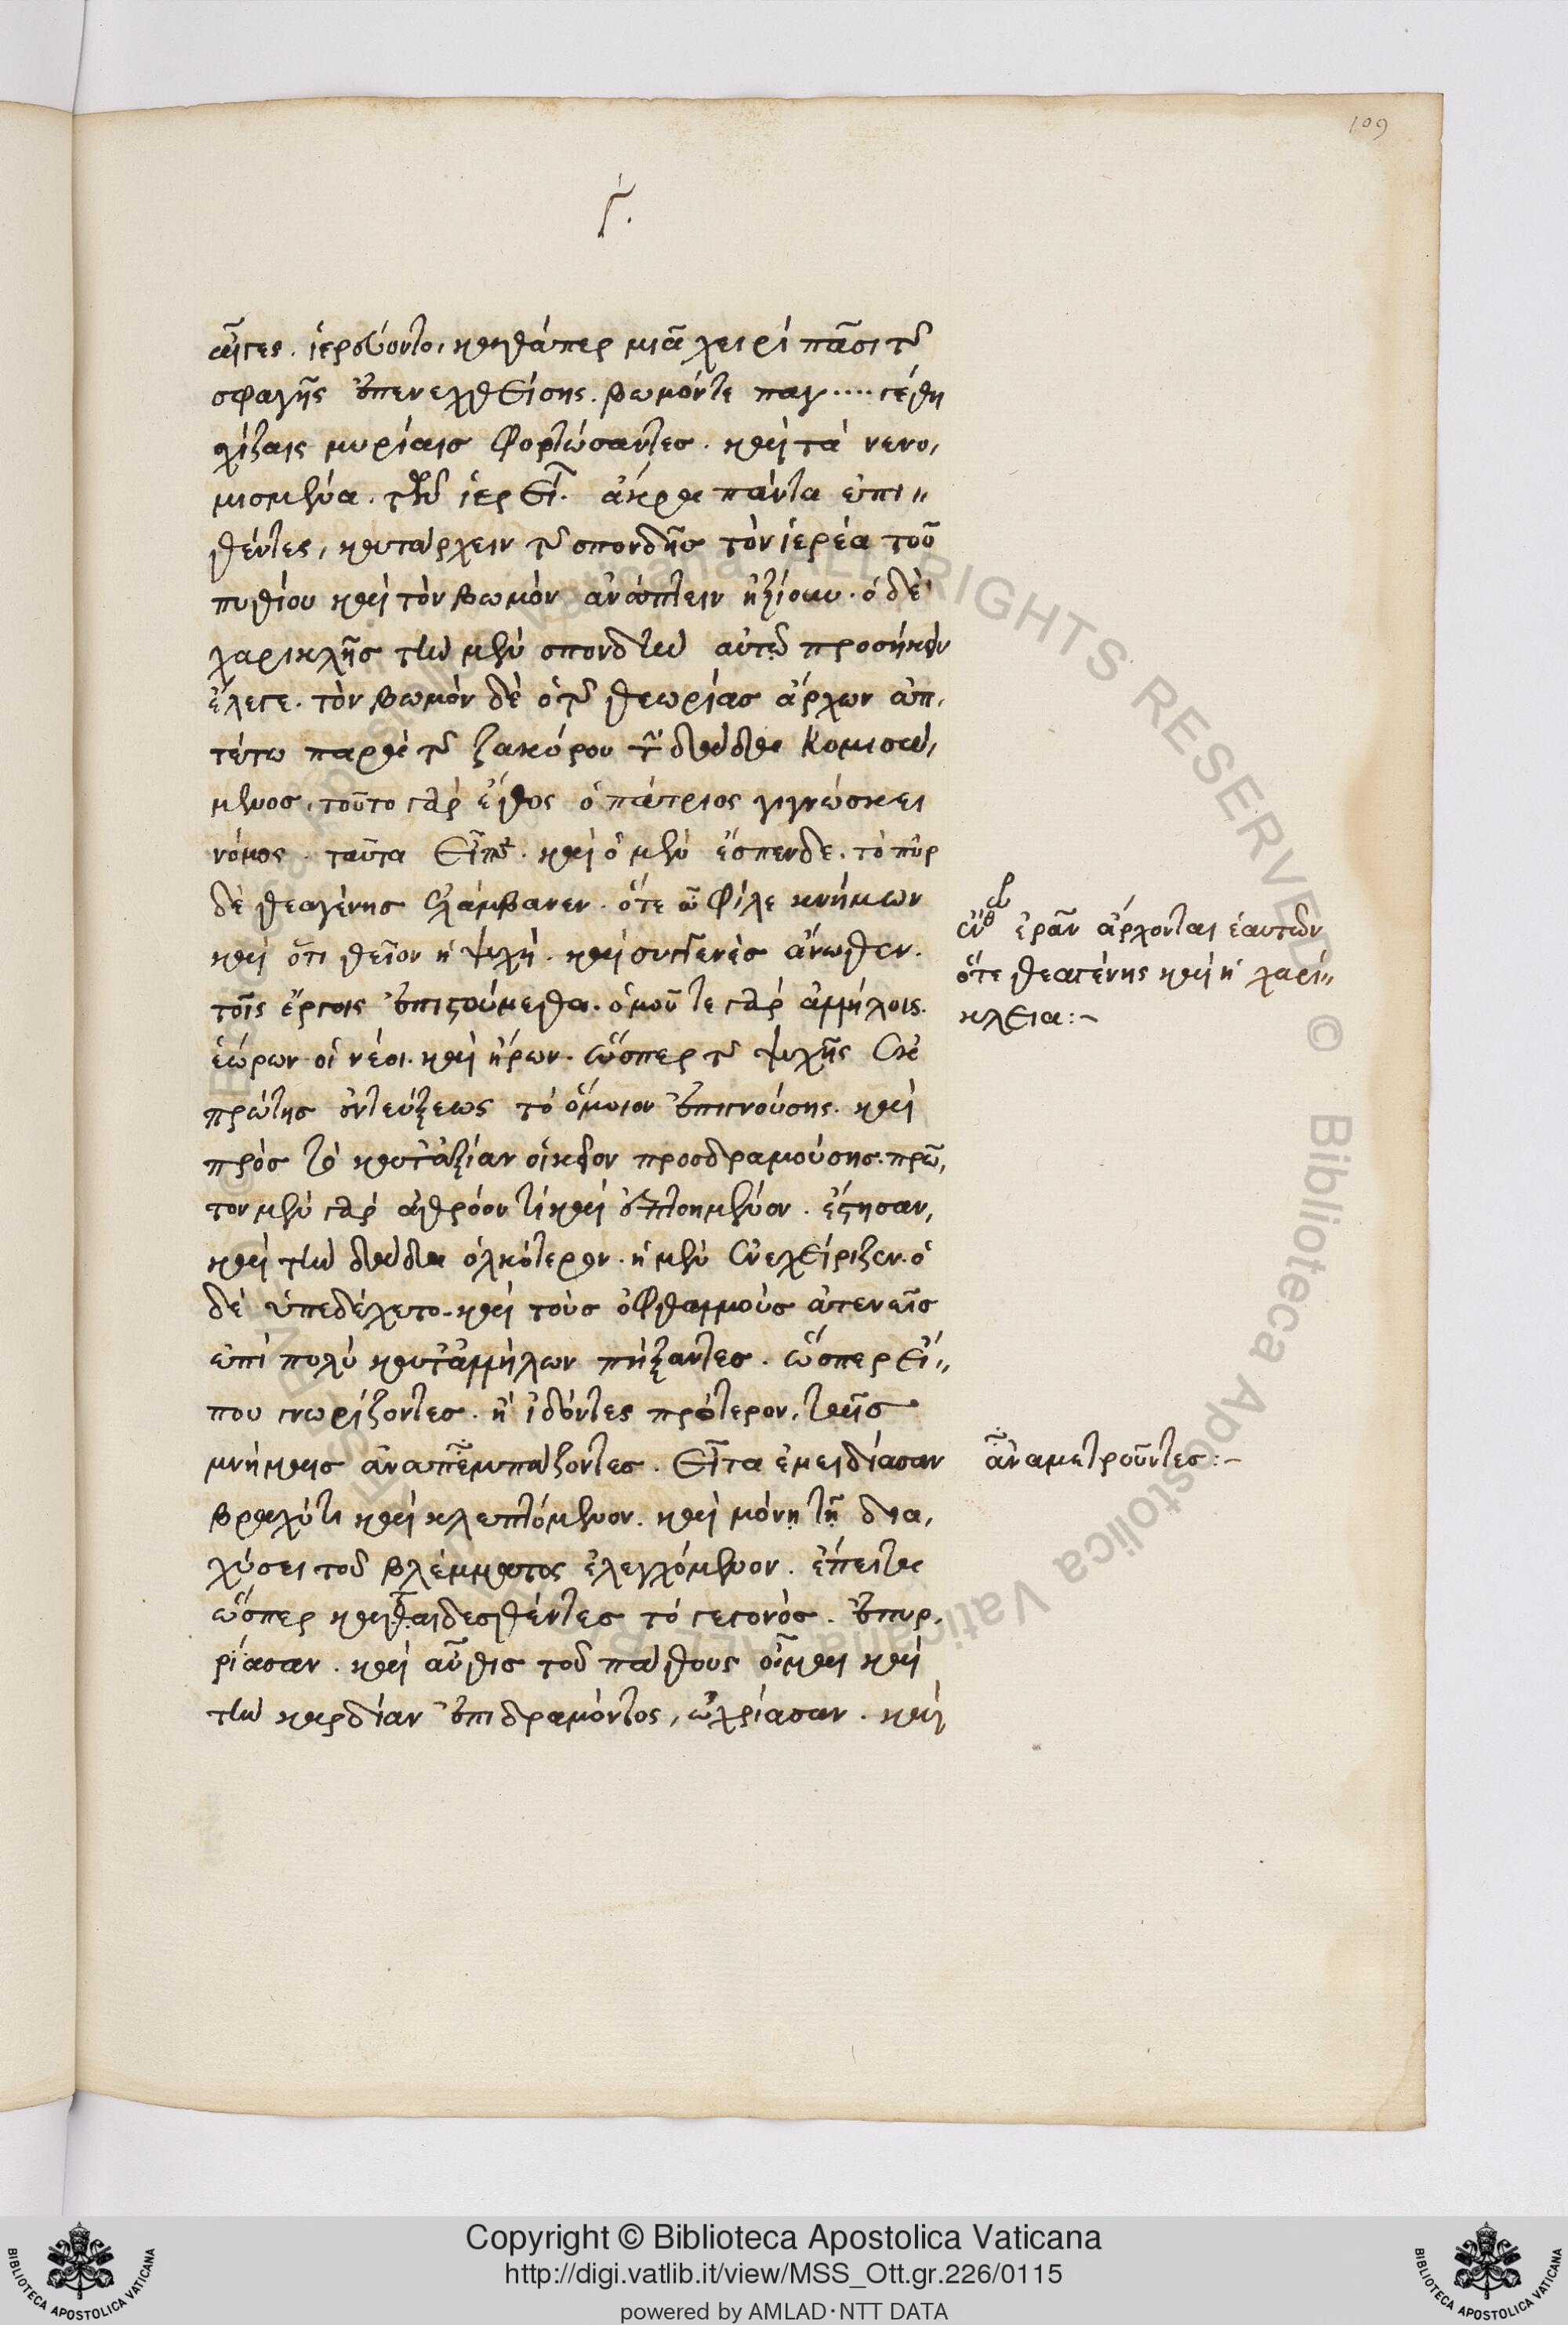 109
γ.
αἶγες. ἱερεύοντο, καθάπερ μιᾷ χειρὶ πᾶσι τῆς
σφαγῆς ἐπενεχθείσης. βωμόν τε παγ.... τέθη
χίζαις μυρίαις φορτώσαντες. καὶ τὰ νενο,
μισμένα. τῶν ἱερείων. ἄκρα πάντα ἐπι"
θέντες, κατάρχειν τῆς σπονδῆς τὸν ἱερέα τοῦ
πυθίου καὶ τὸν βωμὸν ἀνάπτειν ἠξίουν. ὁ δὲ
χαρικλῆς τὴν μὲν σπονδὴν αὐτῷ προσήκειν
ἔλεγε. τὸν βωμὸν δὲ ὁ τῆς θεωρίας ἄρχων ἁπ,
τέτω παρὰ τῆς ζακόρου τὴν δᾷδα κομισά,
μενος, τοῦτο γὰρ ἔθος ὁ πάτριος γιγνώσκει
νόμος. ταῦτα εἶπε. καὶ ὁ μὲν ἔσπενδε. τὸ πῦρ
δὲ θεαγένης ἐλάμβανεν. ὅτε ὦ φίλε κνήμων
καὶ ὅτι θεῖον ἡ ψυχὴ. καὶ συγγενὲς ἄνωθεν.
τοῖς ἔργοις ἐπιστούμεθα. ὁμοῦ τε γὰρ ἀλλήλοις.
ἑώρων οἱ νέοι. καὶ ἤρων. ὥσπερ τῆς ψυχῆς ἐκ
πρώτης ἐντεύξεως τὸ ὅμοιον ἐπιγνούσης. καὶ
πρὸς τὸ κατ' ἀξίαν οἰκεῖον προσδραμούσης. πρῶ,
τον μὲν γὰρ ἀθρόον τι καὶ ἐπτοημένον. ἔστησαν,
καὶ τὴν δᾷδα ὁλκότερον. ἡ μὲν ἐνεχείριζεν. ὁ
δὲ ὑπεδέχετο. καὶ τοὺς ὀφθαλμοὺς ἀτενεῖς
ἐπὶ πολὺ κατ' ἀλλήλων πήξαντες. ὥσπερ εἴ"
που γνωρίζοντες. ἢ ἰδόντες πρότερον, ταῖς
μνήμαις ἀναπεμπάζοντες. εἶτα ἐμειδίασαν
βραχύ τι καὶ κλεπτόμενον. καὶ μόνῃ τῇ δια,
χύσει τοῦ βλέμματος ἐλεγχόμενον. ἔπειτα
ὥσπερ καταιδεσθέντες τὸ γεγονὸς. ἐπυρ,
ρίασαν. καὶ αὖθις τοῦ πάθους οἶμαι καὶ
τὴν καρδίαν ἐπιδραμόντος, ὠχρίασαν. καὶ
ἐρᾶν ἄρχονται ἑαυτῶν
ὅτε θεαγένης καὶ ἡ χαρί"
κλεια:-
ἀναμετροῦντες:-
Copyright © Biblioteca Apostolica Vaticana
http://digi.vatlib.it/view/MSS_Ott.gr.226/0115
powered by AMLAD·NTT DATA
BIBLIOTECA APOSTOLICA VATICANA
BIBLIOTECA APOSTOLICA VATICANA